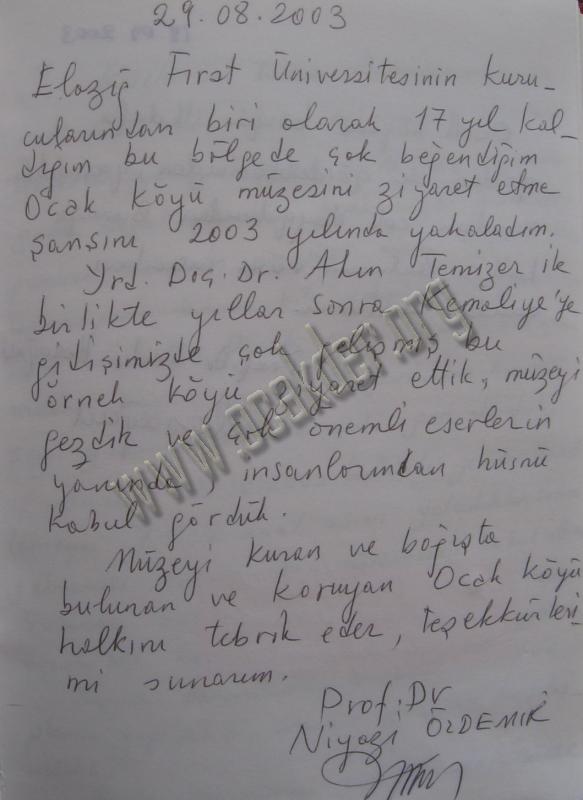 29.08.2003
Elazığ Fırat Üniversitesinin kuru-
cularından biri olarak 17 yıl kal-
dığım bu bölgede çok beğendiğim
Ocak köyü müzesini ziyaret etme
şansını 2003 yılında yakaladım.
Yrd. Doç. Dr. Ahın Temizer ile
birlikte yıllar sonra Kemaliye'ye
gidişimizde çok gelişmiş bu
örnek köyü ziyaret ettik, müzeyi
gezdik ve çok önemli eserlerin
yanında, insanlarından hüsnü
kabul gördük.
Müzeyi kuran ve bağışta
bulunan ve koruyan Ocak köyü
halkını tebrik eder, teşekkürleri-
mi sunarım.
Prof. Dr
Niyazi ÖZDEMİR
www.ocakder.org